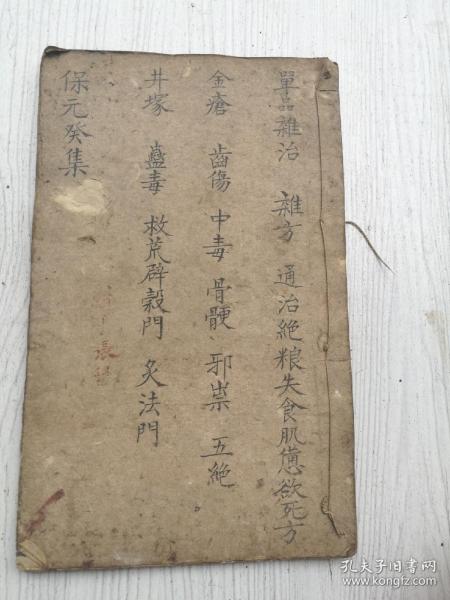 單品雜治 雜方 通治絶粮失食肌憊欲死方
金瘡 齒傷 中毒 骨骾 邪祟 五絶
井塚 蠱毒 救荒辟穀門 灸法門
保元癸集
張
孔夫子旧书网
www.kongfz.com